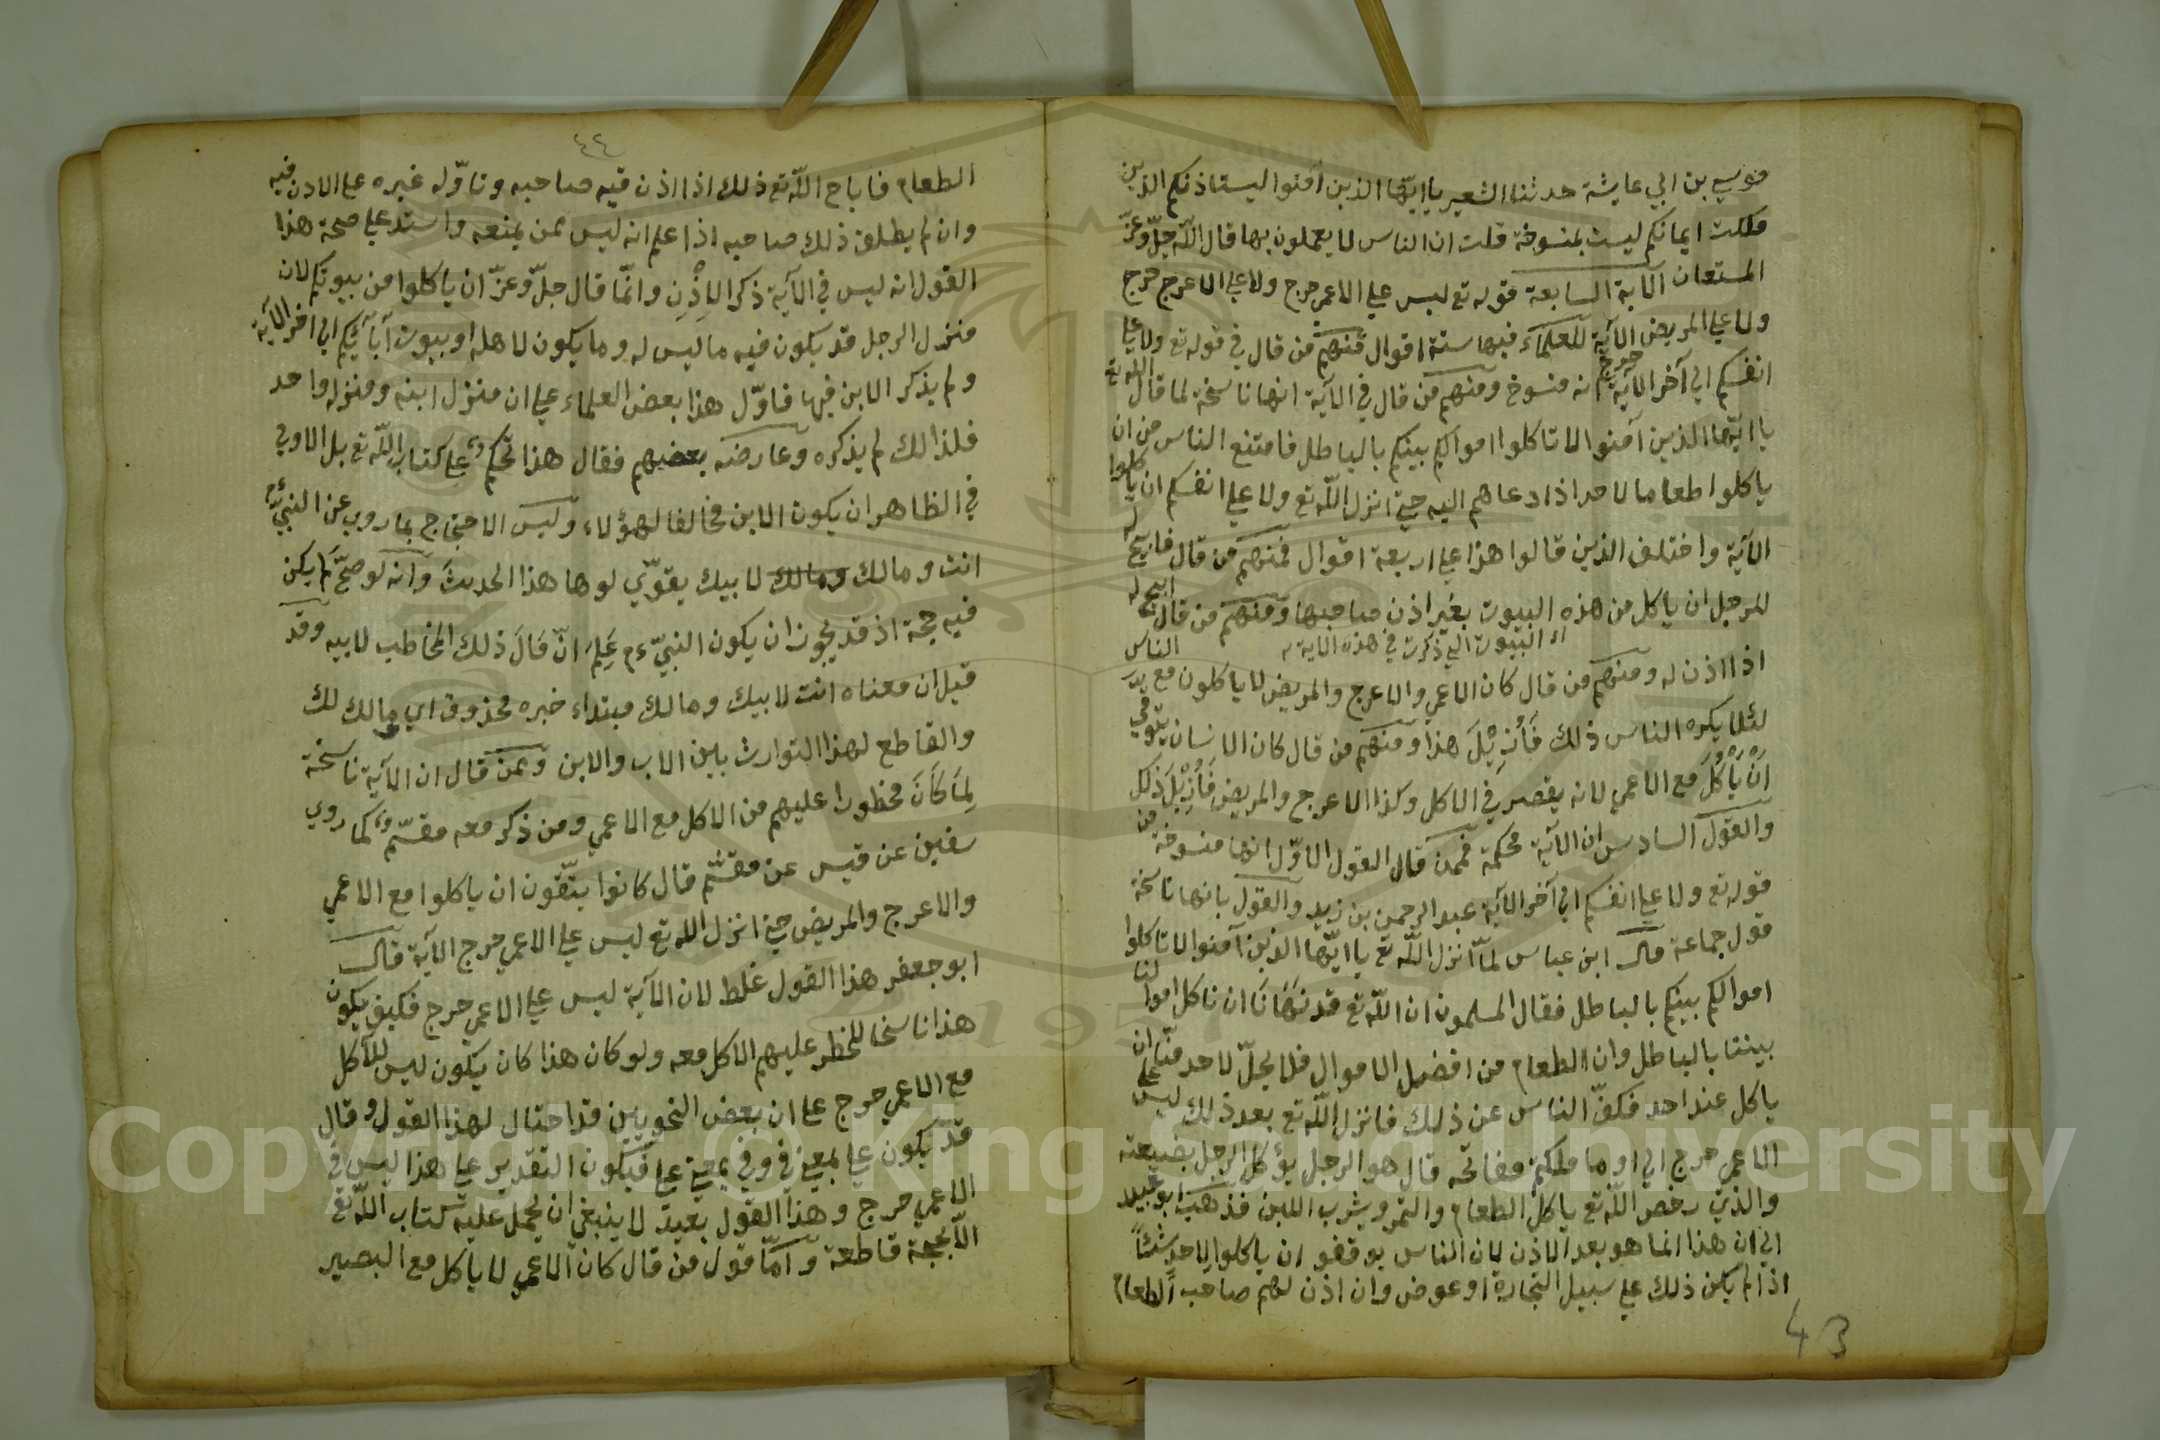 موسي بن ابي عايشة حدثنا الشعبي يا ايّها الذين آمنوا ليستاذنكم الذين
ملكت ايمانكم ليست بمنسوخة قلت ان الناس لا يعملون بها قال اللّه جلّ وعزّ
المستعان الآية السابعة قوله تع ليس علي الاعمي حرج ولا علي الاعرج حرج
ولا علي المريض حرج الآية للعلماء فيها ستة اقوال فمنهم من قال في قوله تع ولا علي
انفسكم الي آخر الآية انه منسوخ ومنهم من قال في الآية انها ناسخة لما قال اللّه تع
يا ايّها الذين آمنوا لا تاكلوا اموالكم بينكم بالباطل فامتنع الناس من ان
ياكلوا طعاما لاحد اذا دعاهم اليه حتي انزل اللّه تع ولا علي انفسكم ان تاكلوا
الآية واختلف الذين قالوا هذا علي اربعة اقوال فمنهم من قال فابيح له
للرجل ان ياكل من هذه البيوت بغير اذن صاحبها ومنهم من قال ابيح له
اي البيوت التي ذكرت في هذه الآية
اذا اذن له ومنهم من قال كان الاعمي والاعرج والمريض لا ياكلون مع الناس
لئلا يكره الناس ذلك فَأُزِيْلَ هذا ومنهم من قال كان الانسان يتوقي
اَنْ يَأْكُلَ مع الاعمي لانه يقصر في الاكل وكذا الاعرج والمريض فَأُزِيْلَ ذلك
والقول السادس ان الآية محكمة فممن قال القول الاوّل انها منسوخة من
قوله تع ولا علي انفسكم الي آخر الآية عبد الرحمن بن زيد والقول بانها ناسخة
قول جماعة قال ابن عباس لمّا انزل اللّه تع يا ايّها الذين آمنوا لا تاكلوا
اموالكم بينكم بالباطل فقال المسلمون ان اللّه تع قد نَهَانَا ان ناكل اموالنا
بيننا بالباطل وان الطعام من افضل الاموال فلا يحلّ لاحد منّا ان
ياكل عند احد فكفّ الناس عن ذلك فانزل اللّه تع بعد ذلك ليس علي
الاعمي حرج الي او ما ملكتم مفاتحه قال هو الرجل يؤكل الرجل بضيعته
والذي رخص اللّه تع ياكل الطعام والتمر ويشرب اللبن فذهب ابو عبيد
الي ان هذا انما هو بعد الاذن لان الناس توقفو ان ياكلوا لاحد شئاً
اذا لم يكن ذلك علي سبيل التجارة او عوض وان اذن لهم صاحب الطعام
43
٤٤
الطعام فاباح اللّه تع ذلك اذا اذن فيه صاحبه وتاوّله غيره علي الاذن فيه
وان لم يطلق ذلك صاحبه اذا علم انه ليس ممن يمنعه واستدل علي صحة هذا
القول انه ليس في الآية ذكر الاِذْنِ وانّما قال جلّ وعزّ ان ياكلوا من بيوتكم لان
منزل الرجل قد يكون فيه ما ليس له وما يكون لاهله او بيوت آبآئكم الي اخر الآية
ولم يذكر الابن فيها فاوّل هذا بعض العلماء علي ان منزل ابنه ومنزله واحد
فلذالك لم يذكره وعارضه بعضهم فقال هذا تحكم علي كتاب اللّه تع بل الاولي
في الظاهر ان يكون الابن مخالفا لهؤلاء وليس الاحتجاج بما روي عن النبيّ ءم
انت ومالك ومالك لابيك يقوّي لوها هذا الحديث وانه لو صحّ لم يكن
فيه حجة اذ قد يجوز ان يكون النبيّ ءم عَلِمَ انّ مَالَ ذلك المخاطب لابيه وقد
قيل ان معناه انت لابيك ومالك مبتداء خبره محذوف اي ومالك لك
والقاطع لهذا التوارث بين الاب والابن وممن قال ان الآية ناسخة
لِمَا كَانَ محظورا عليهم من الاكل مع الاعمي ومن ذكر معه مقسّم كما روي
سفين عن قيس عن مقسّم قال كانوا يتّقون ان ياكلوا مع الاعمي
والاعرج والمريض حتي انزل اللّه تع ليس علي الاعمي حرج الآية قال
ابو جعفر هذا القول غلط لان الآية ليس علي الاعمي حرج فكيف يكون
هذا ناسخا للحظر عليهم الاكل معه ولو كان هذا كان يكون ليس للآكل
مع الاعمي حرج علي ان بعض النحويين قد احتال لهذا القول وقال
قد يكون علي بمعني في وفي بمعني علي فيكون التقدير علي هذا ليس في
الاعمي حرج وهذا القول بعيد لا ينبغي ان يحمل عليه كتاب اللّه تع
الّا بحجة قاطعة وامّا قول من قال كان الاعمي لا ياكل مع البصير
Copyright © King Saud University
1957